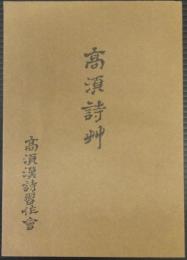 高須詩艸
高須漢詩習作會